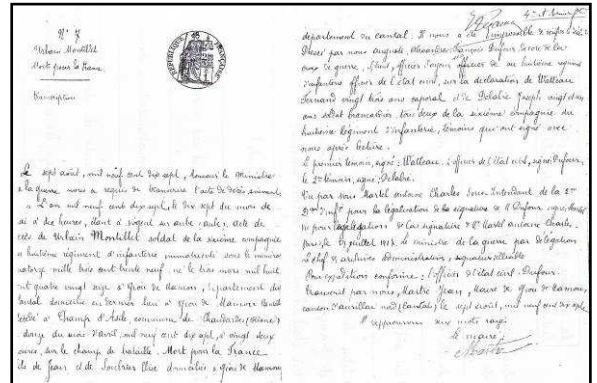 N° 7
Urbain Montillet
Mort pour la France
transcription
RÉPUBLIQUE FRANÇAISE
Le sept août, mil neuf cent dix sept, Monsieur le Ministre
la guerre nous a requis de transcrire l'acte de décès suivant
l'an mil neuf cent dix sept, le dix sept du mois de
ai à dix heures, étant à Nogent sur aube (aube), acte de
cès de Urbain Montillet soldat de la sixième compagnie
huitième régiment d'infanterie immatriculé sous le numéro
mille trois cent trente neuf. né le trois mars mil huit
nt quatre vingt seize à Giou de Mamou, département du
antal domicilié en dernier lieu à Giou de Mamou Cantal
décédé à Champ d'Asile, commune de (Marne)
douze du mois d'avril, mil neuf cent dix sept, à vingt deux
eures, sur le champ de bataille. Mort pour la France
ils de Jean et de Élise domiciliés à Giou de Mamou
département du cantal. Il nous a été impossible de
Dressé par nous Auguste, Alexandre, François Dufour, de la
croix de guerre, officier payeur officier de au huitième régiment
d'infanterie officier de l'état civil, sur la déclaration de Watteau
Fernand vingt trois ans caporal et de Delabre Joseph vingt et un
ans soldat brancardier, tous deux de la sixième compagnie du
huitième Régiment d'infanterie, témoins qui ont signé avec
nous après lecture.
Le premier témoin, signé: Watteau. L'officier de l'état civil, signé: Dufour,
le 2e témoin, signé: Delabre.
Vu par nous Martel Antoine Charles Sous-Intendant de la 2me
pour la légalisation de la signature de M Dufour, signé: Martel
Vu pour légalisation de la signature de M Martel Antoine Charles.
Paris, le juillet 1917. Le ministre de la guerre par délégation
Le chef des archives administratives, signature illisible
Pour expédition conforme: l'officier de l'état civil. Dufour.
Transcrit par nous, Jean, Maire de Giou de Mamou,
canton d'Aurillac nord (Cantal) le sept août, mil neuf cent dix sept
mots rayés
Le maire,